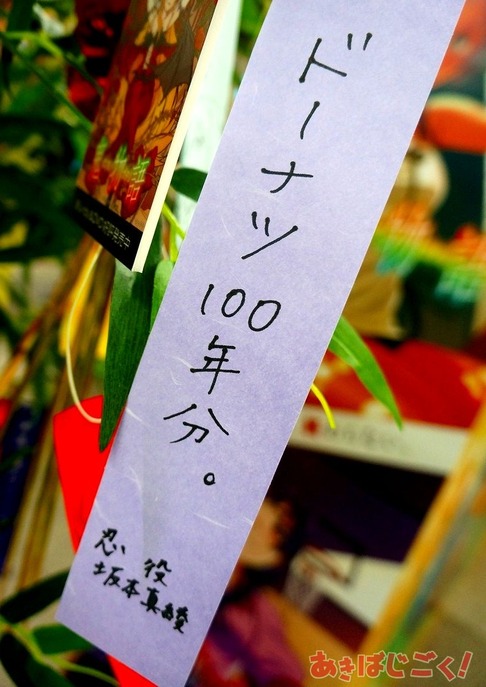 ドーナツ
100
年分。
忍 役
坂本真綾
あきばじごく!